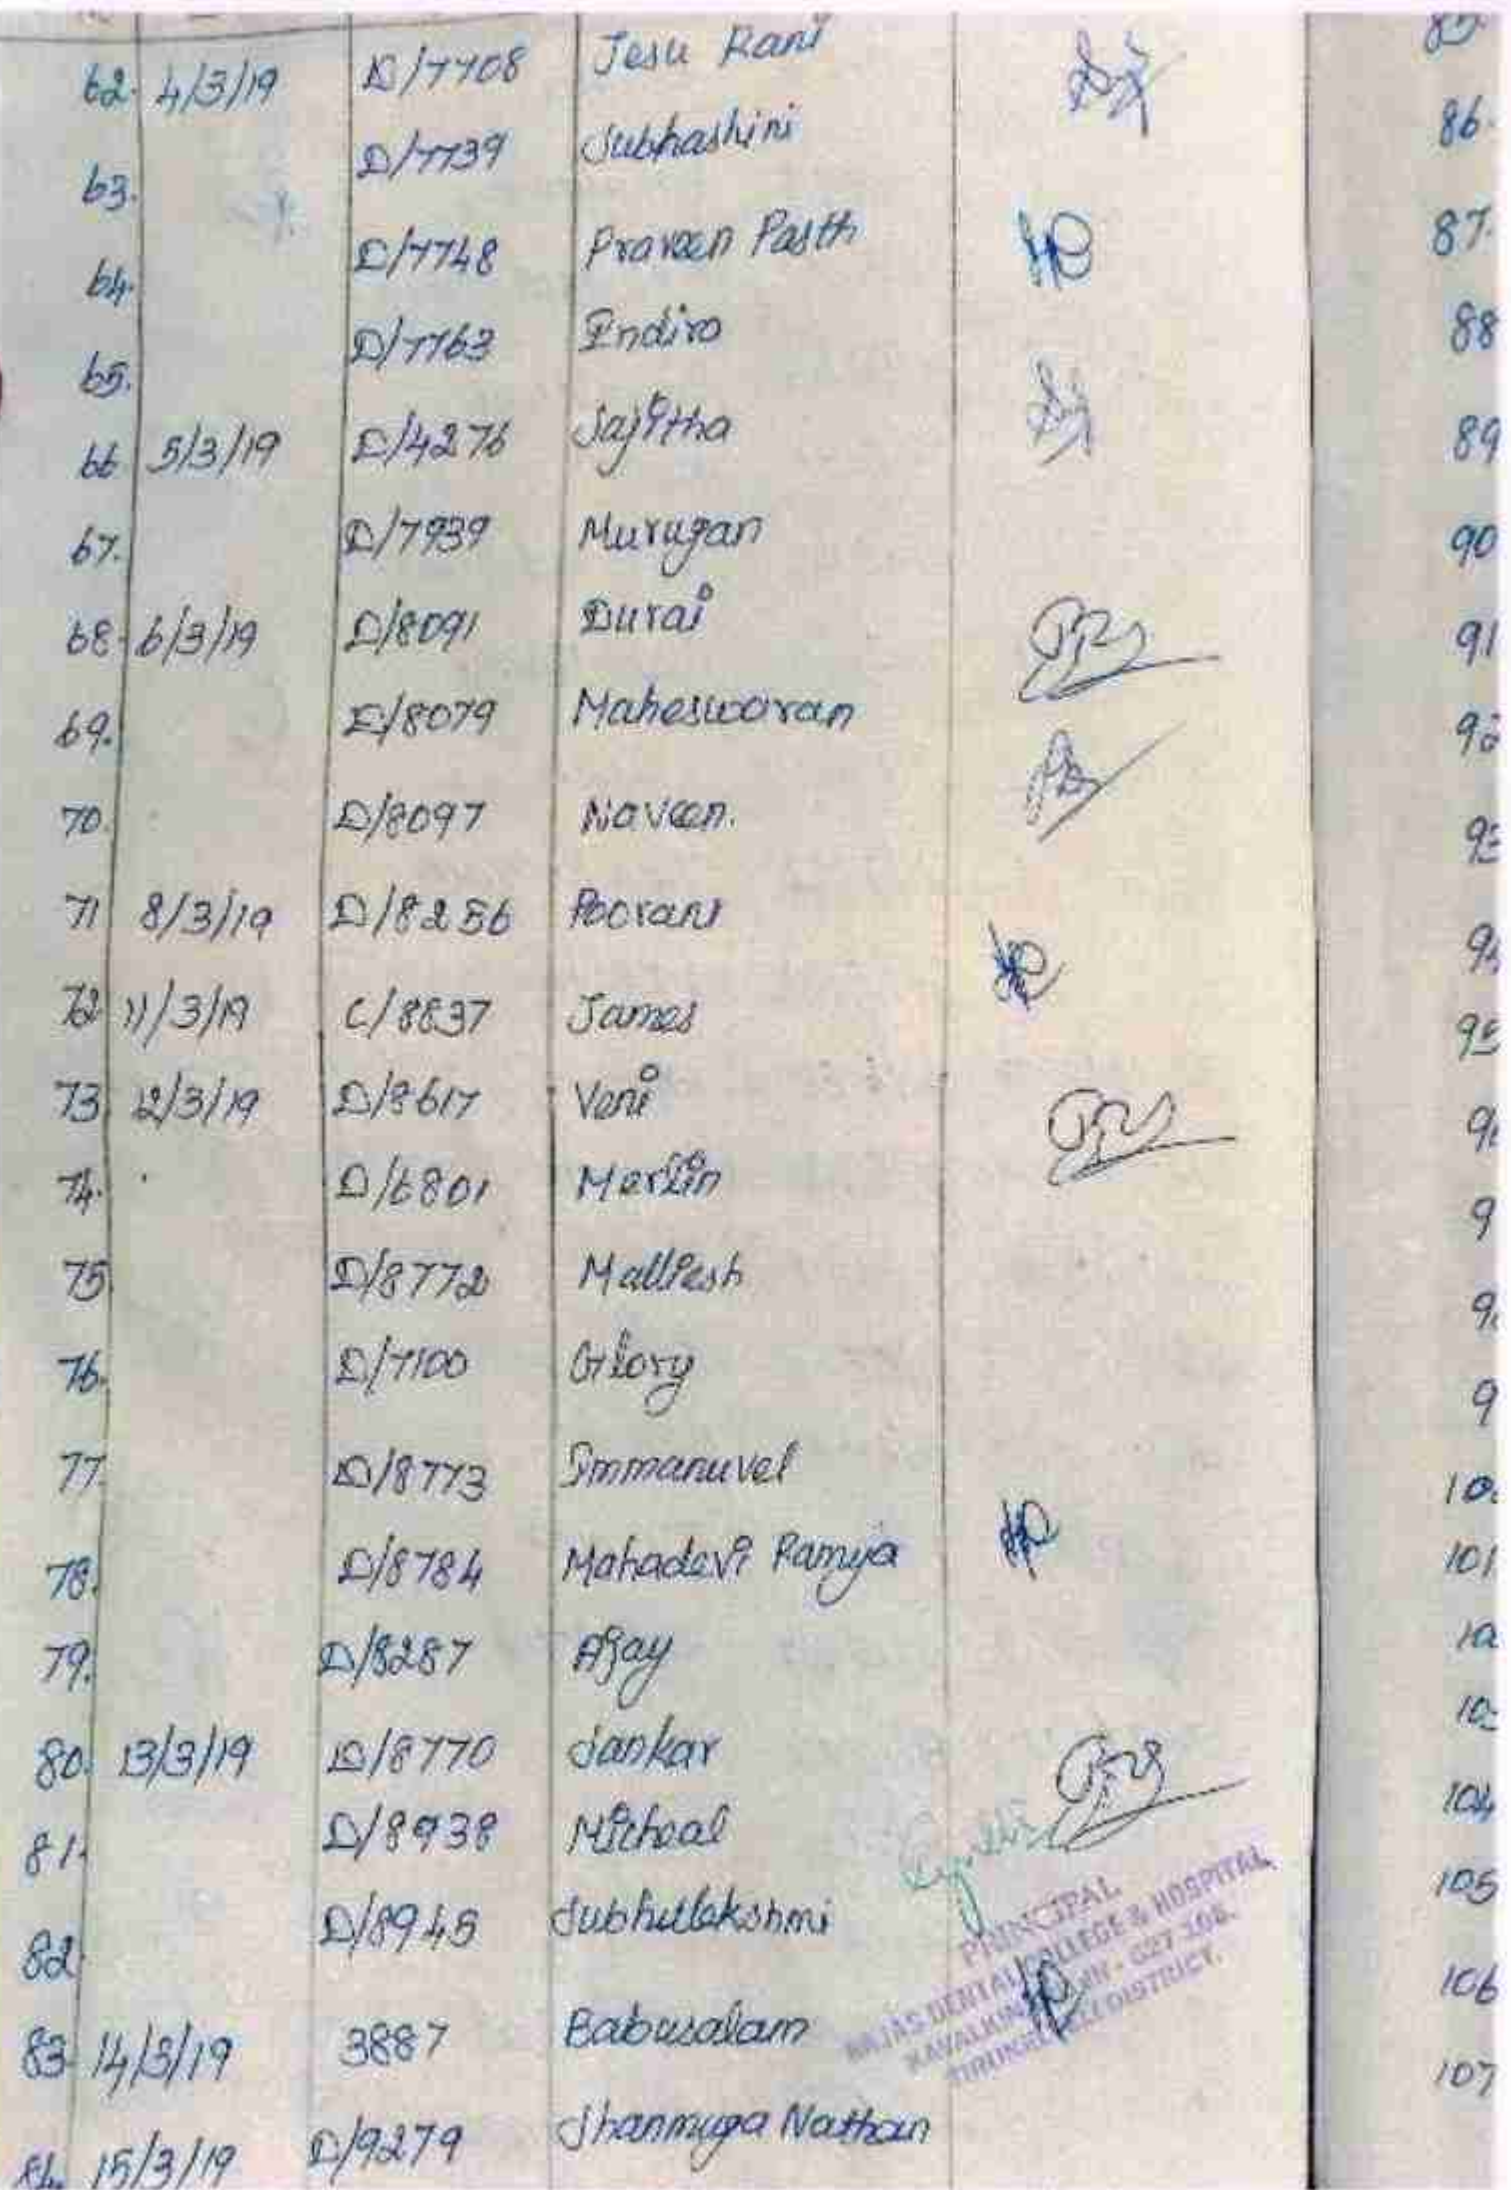 62. 4/3/19 D/7708 Jesu Rani
63. D/7739 Subhashini
64. D/7748 Praveen
65. D/7763 Indira
66. 5/3/19 D/4276 Sajitha
67. D/7939 Murugan
68. 6/3/19 D/8091 Durai
69. D/8079 Maheswaran
70. D/8097 Naveen.
71 8/3/19 D/8256 Poorani
72 11/3/19 C/8837 James
73 12/3/19 D/8617 Veni
74. D/6801 Merlin
75 D/8772 Malliesh
76. D/7100 Glory
77. D/8773 Immanuvel
78. D/8784 Mahadevi Ramya
79. D/8287 Ajay
80. 13/3/19 D/8770 Sankar
81. D/8938 Micheal
82 D/8945 Subhulakshmi
83 14/3/19 3887 Babusalam
84. 15/3/19 D/9279 Shanmuga Nathan
PRINCIPAL
RAJAS DENTAL COLLEGE & HOSPITAL,
DISTRICT.
85.
86.
87.
88
89
90
91
101
104
105
106
107